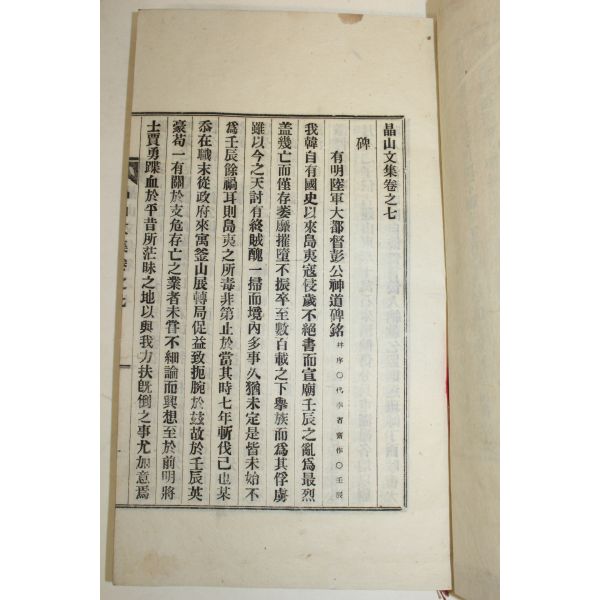 晶山文集卷之七
碑
有明陸軍大都督彭公神道碑銘 幷序○代李省齋作○壬辰
我韓自有國史以來島夷寇侵歲不絕書而宣廟壬辰之亂爲最烈
盖幾亡而僅存萎靡摧墮不振卒至數百載之下擧族而爲其俘虜
雖以今之天討有終賊醜一掃而境內多事久猶未定是皆未始不
爲壬辰餘禍耳則島夷之所毒非第止於當其時七年斬伐已也某
忝在職末從政府來寓釜山展轉局促益致扼腕於玆故於壬辰英
豪苟一有關於支危存亡之業者未嘗不細論而興想至於前明將
士賈勇蹀血於平昔所茫昧之地以與我力扶旣倒之事尤加意焉